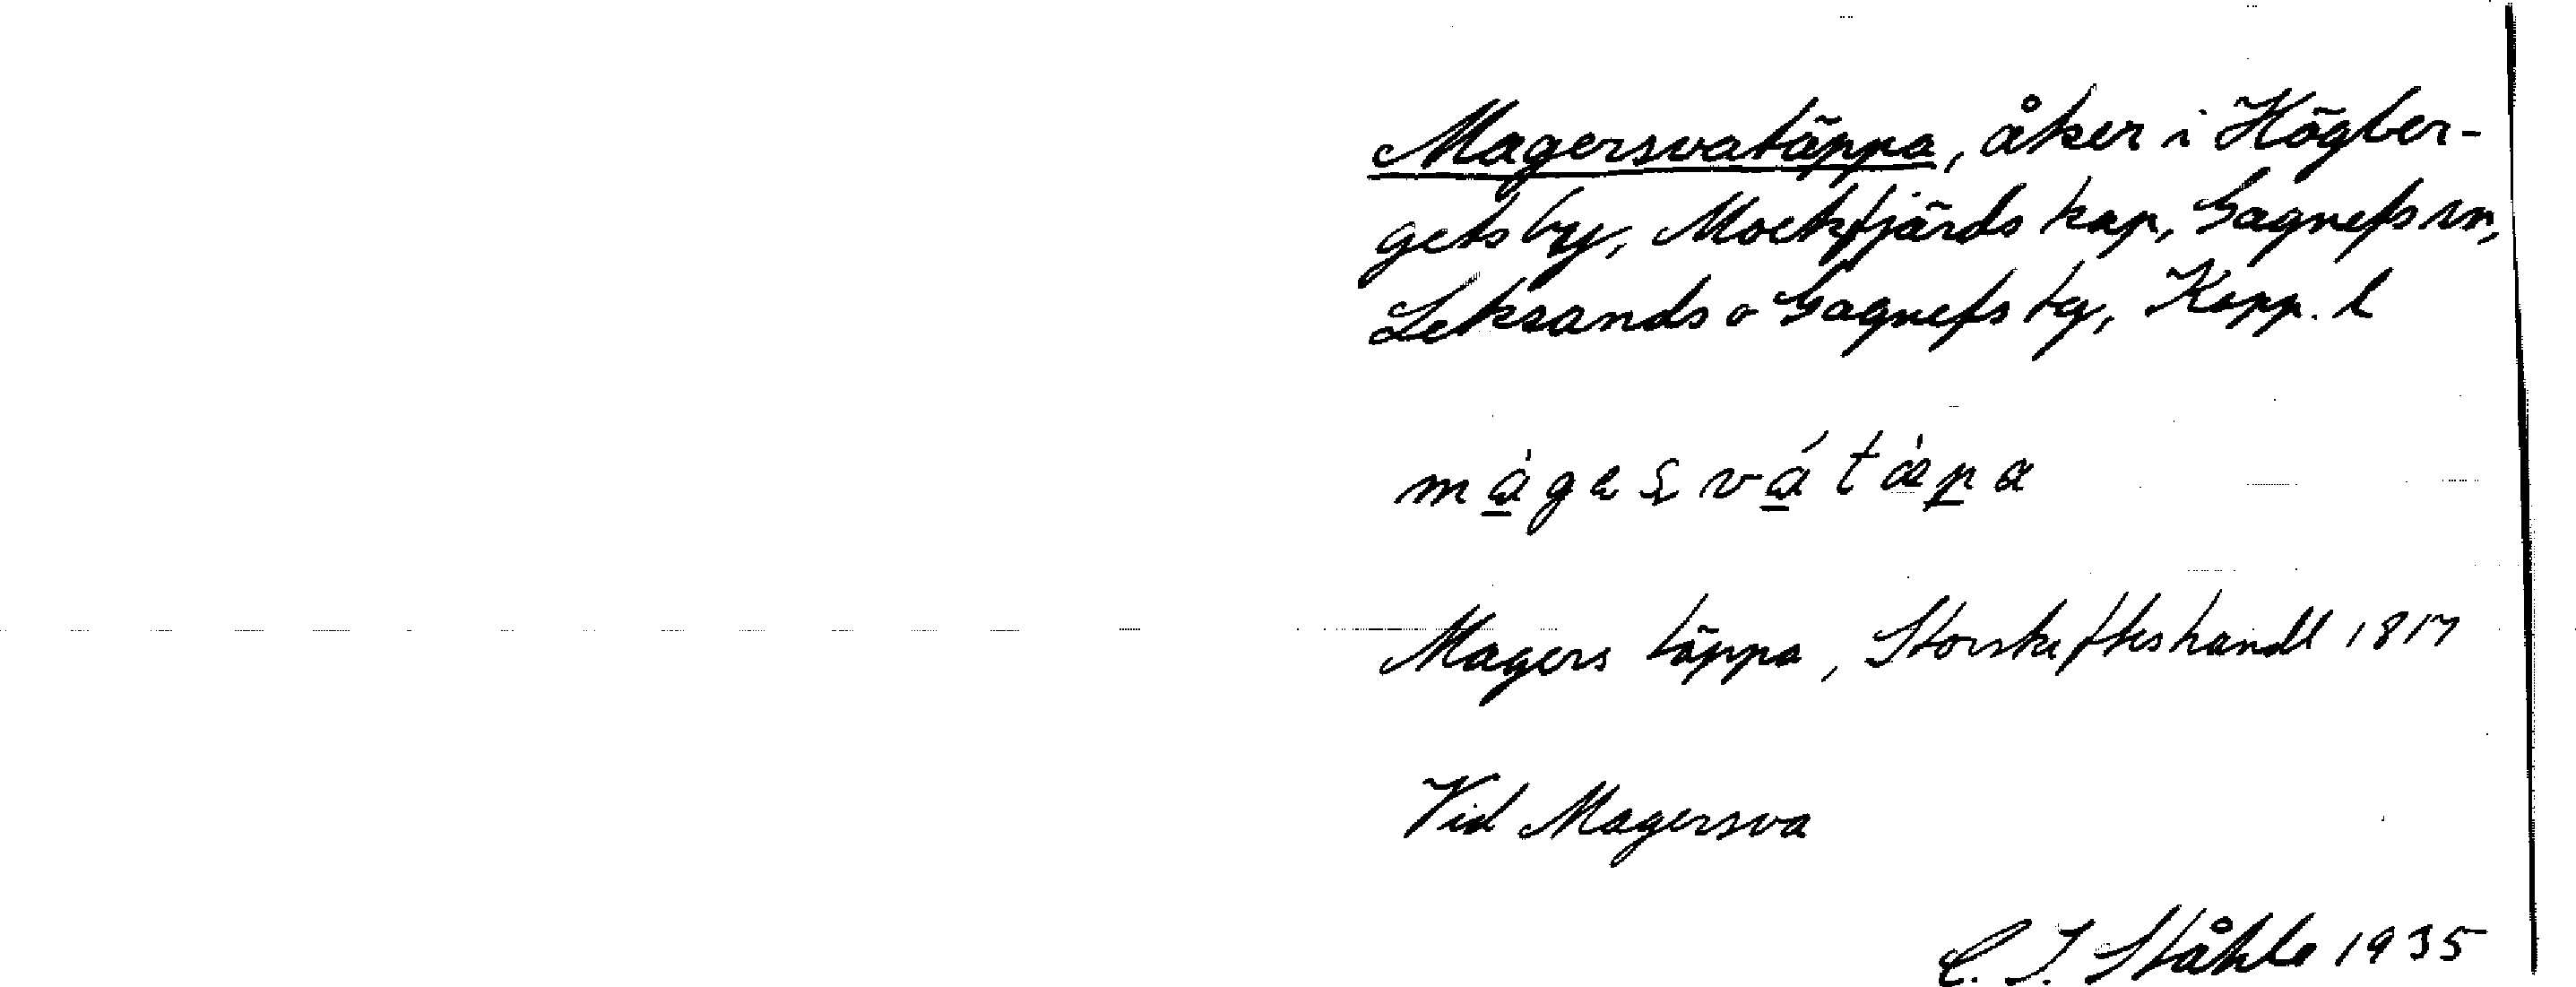 Magersvatäppa, åker i Högber-
gets by, Mockfjärds kap, Gagnefs sn,
Leksands o Gagnefs tg, Kopp. l
màgesvátäpa
Magers täppa, Storskifteshandl 1817
Vid Magersva
C. I. Ståhle 1935